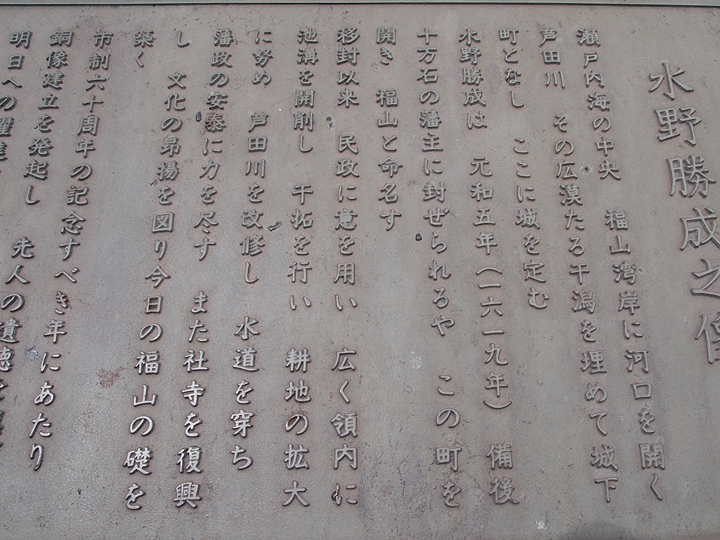 水野勝成之像
瀬戸内海の中央 福山湾岸に河口を開く
芦田川 その広漠たる干潟を埋めて城下
町となし ここに城を定む
水野勝成は 元和五年(一六一九年) 備後
十万石の藩主に封ぜられるや この町を
開き 福山と命名す
移封以来 民政に意を用い 広く領内に
池溝を開削し 干拓を行い 耕地の拡大
に努め 芦田川を改修し 水道を穿ち
藩政の安泰に力を尽す また社寺を復興
し 文化の昂揚を図り今日の福山の礎を
築く
市制六十周年の記念すべき年にあたり
銅像建立を発起し 先人の遺徳を
明日への躍進